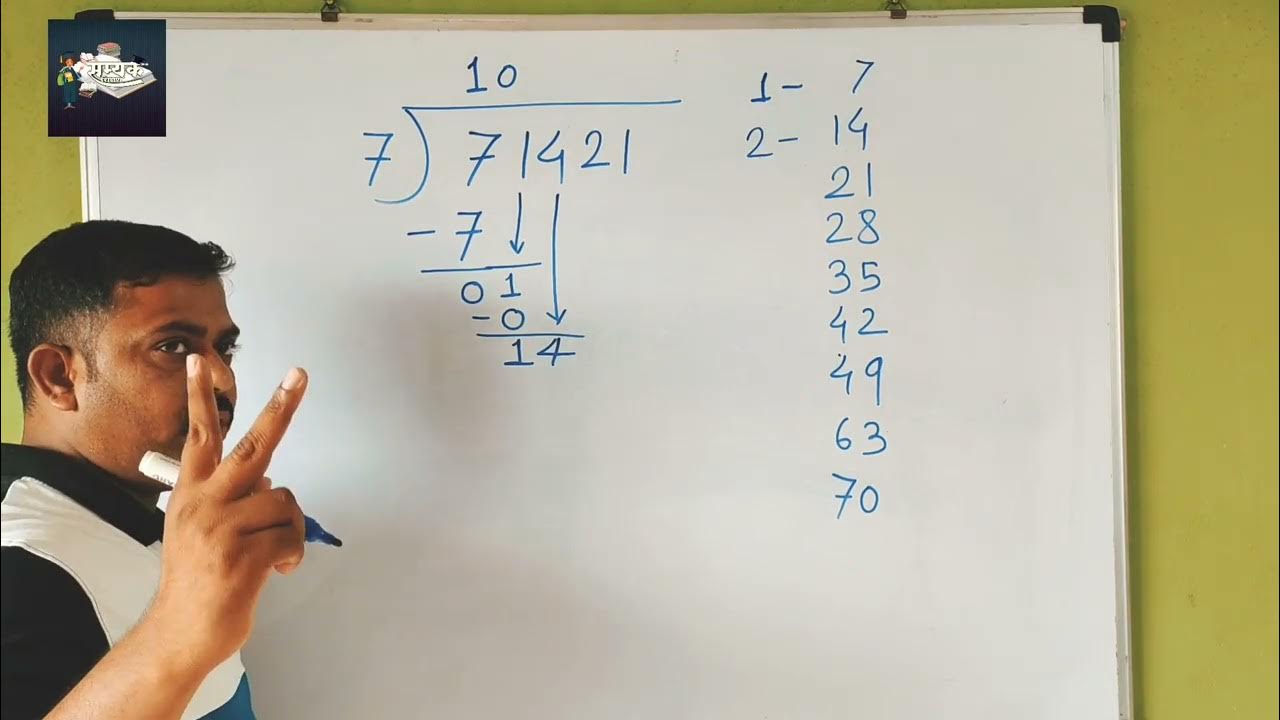 सम्यक
10
7) 71421
- 7
01
- 0
14
1 - 7
2 - 14
21
28
35
42
49
63
70